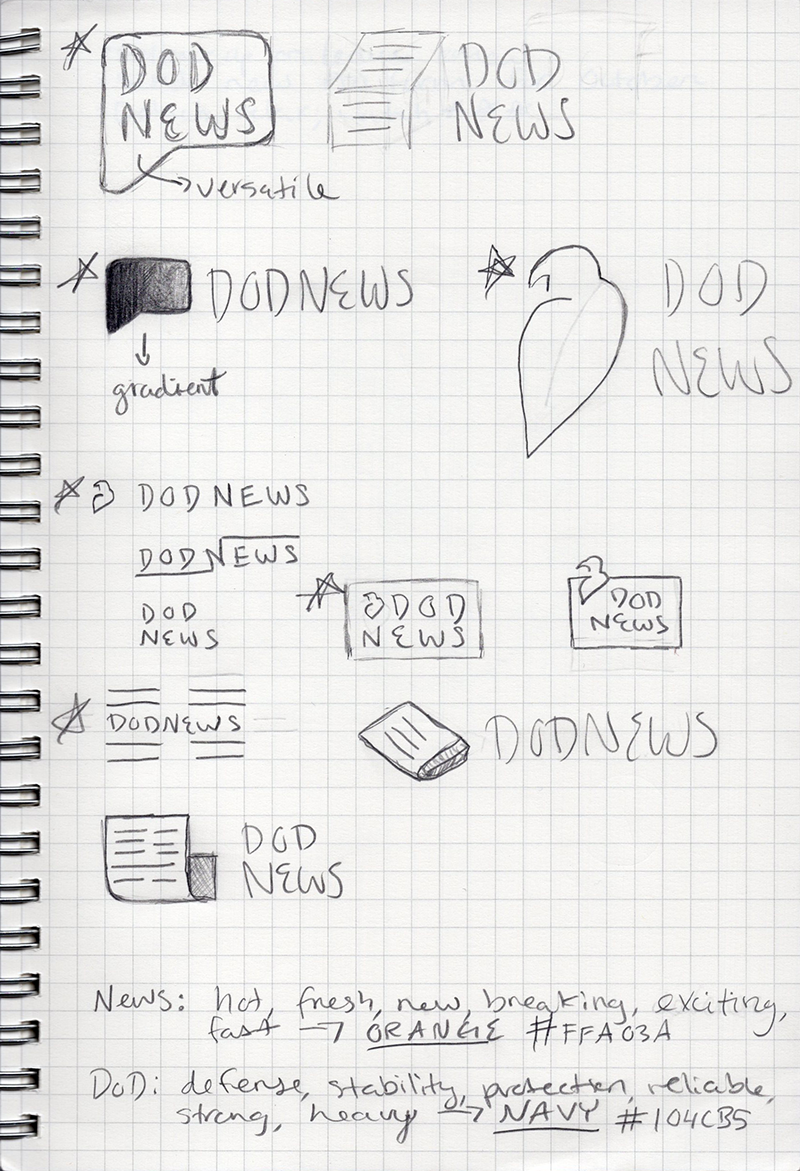 DOD
NEWS
versatile
DOD
NEWS
DODNEWS
gradient
DOD
NEWS
DODNEWS
DODNEWS
DOD
NEWS
DOD
NEWS
DOD
NEWS
DODNEWS
DODNEWS
DOD
NEWS
News: hot, fresh, new, breaking, exciting,
fast → ORANGE #FFA03A
DoD: defense, stability, protection, reliable,
strong, heavy → NAVY #104CB5